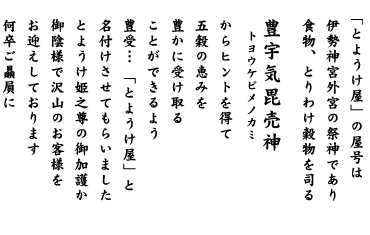 「とようけ屋」の屋号は
伊勢神宮外宮の祭神であり
食物、とりわけ穀物を司る
豊宇気毘売神
トヨウケビメノカミ
からヒントを得て
五穀の恵みを
豊かに受け取る
ことができるよう
豊受…「とようけ屋」と
名付けさせてもらいました
とようけ姫之尊の御加護か
御陰様で沢山のお客様を
お迎えしております
何卒ご贔屓に